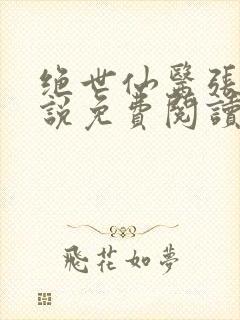 绝世仙醫張
說免費閱讀
飛花如夢